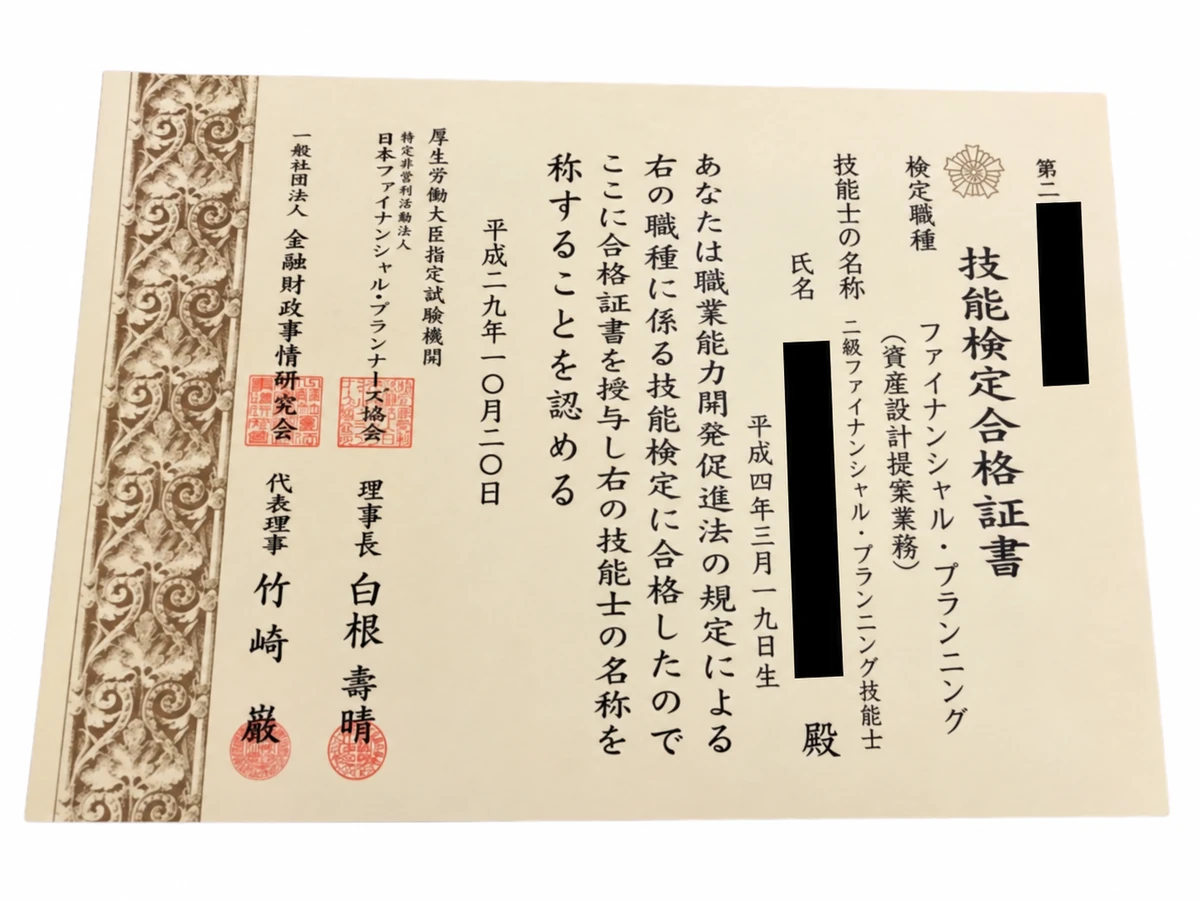 第二
技能検定合格証書
検定職種
ファイナンシャル・プランニング
(資産設計提案業務)
技能士の名称
二級ファイナンシャル・プランニング技能士
氏名
殿
平成四年三月一九日生
あなたは職業能力開発促進法の規定による
右の職種に係る技能検定に合格したので
ここに合格証書を授与し右の技能士の名称を
称することを認める
平成二九年一〇月二〇日
厚生労働大臣指定試験機開
特定非営利活動法人
日本ファイナンシャル・プランナーズ協会
理事長 白根 壽晴
一般社団法人 金融財政事情研究会
代表理事 竹崎 巌